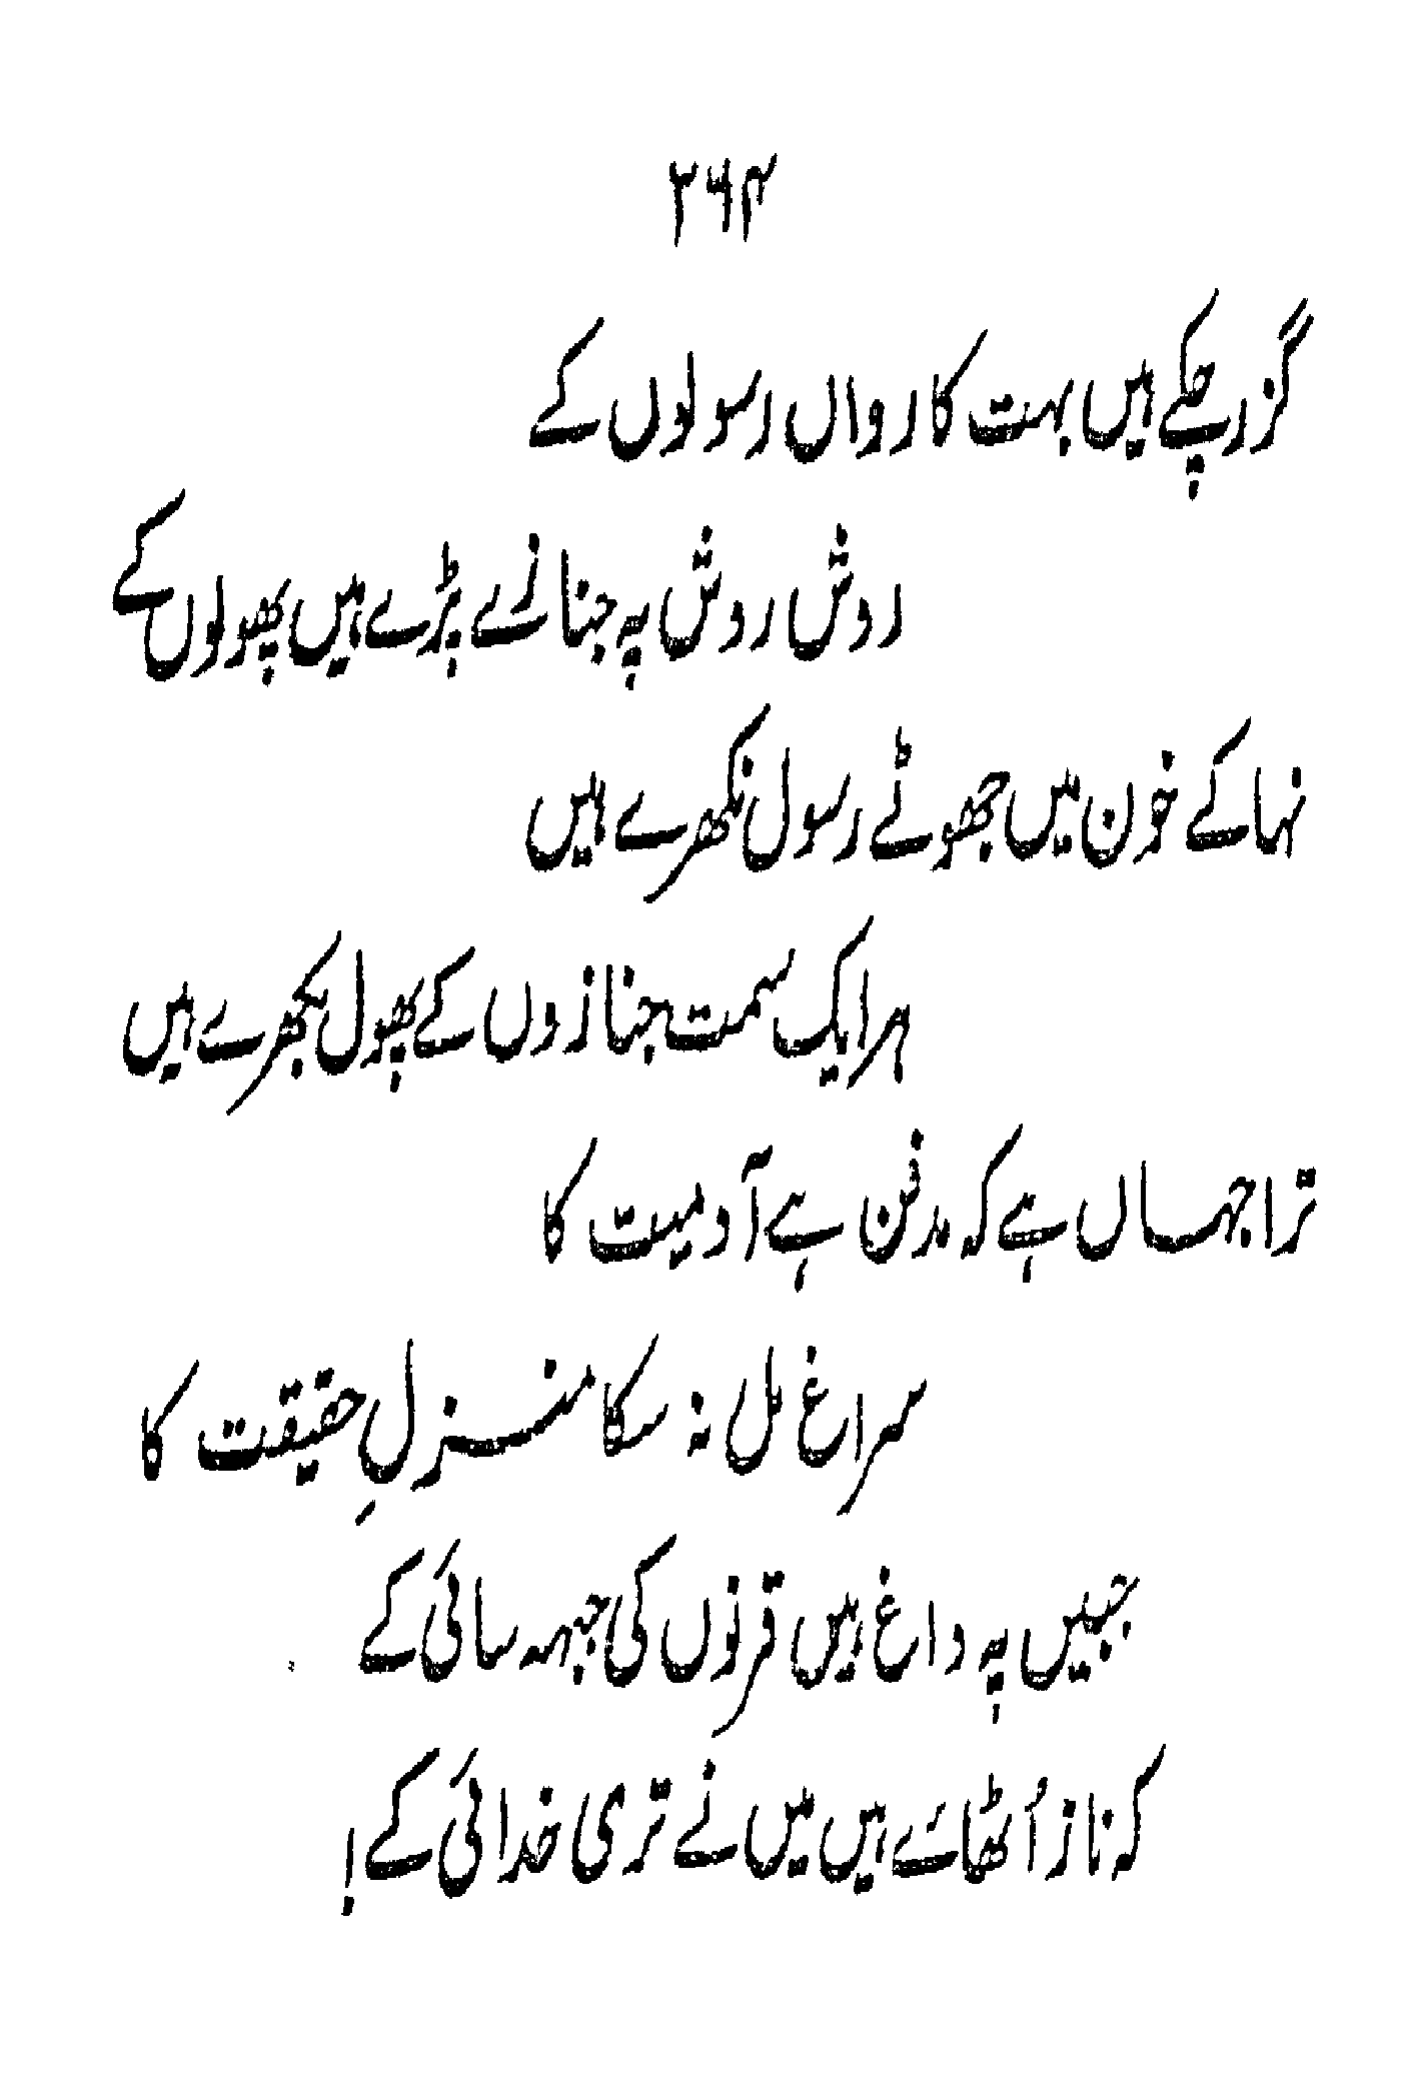 ۲۶۴
گزر چکے ہیں بہت کارواں رسولوں کے
روش روش پہ جنازے پڑے ہیں پھولوں کے
نہا کے خون میں جھوٹے رسول نکھرے ہیں
ہر ایک سمت جنازوں کے پھول بکھرے ہیں
ترا جہاں ہے کہ مدفن ہے آدمیت کا
سراغ مل نہ سکا منزلِ حقیقت کا
جبیں پہ داغ ہیں قرنوں کی جبہہ سائی کے
کہ ناز اُٹھائے ہیں میں نے تری خدائی کے!